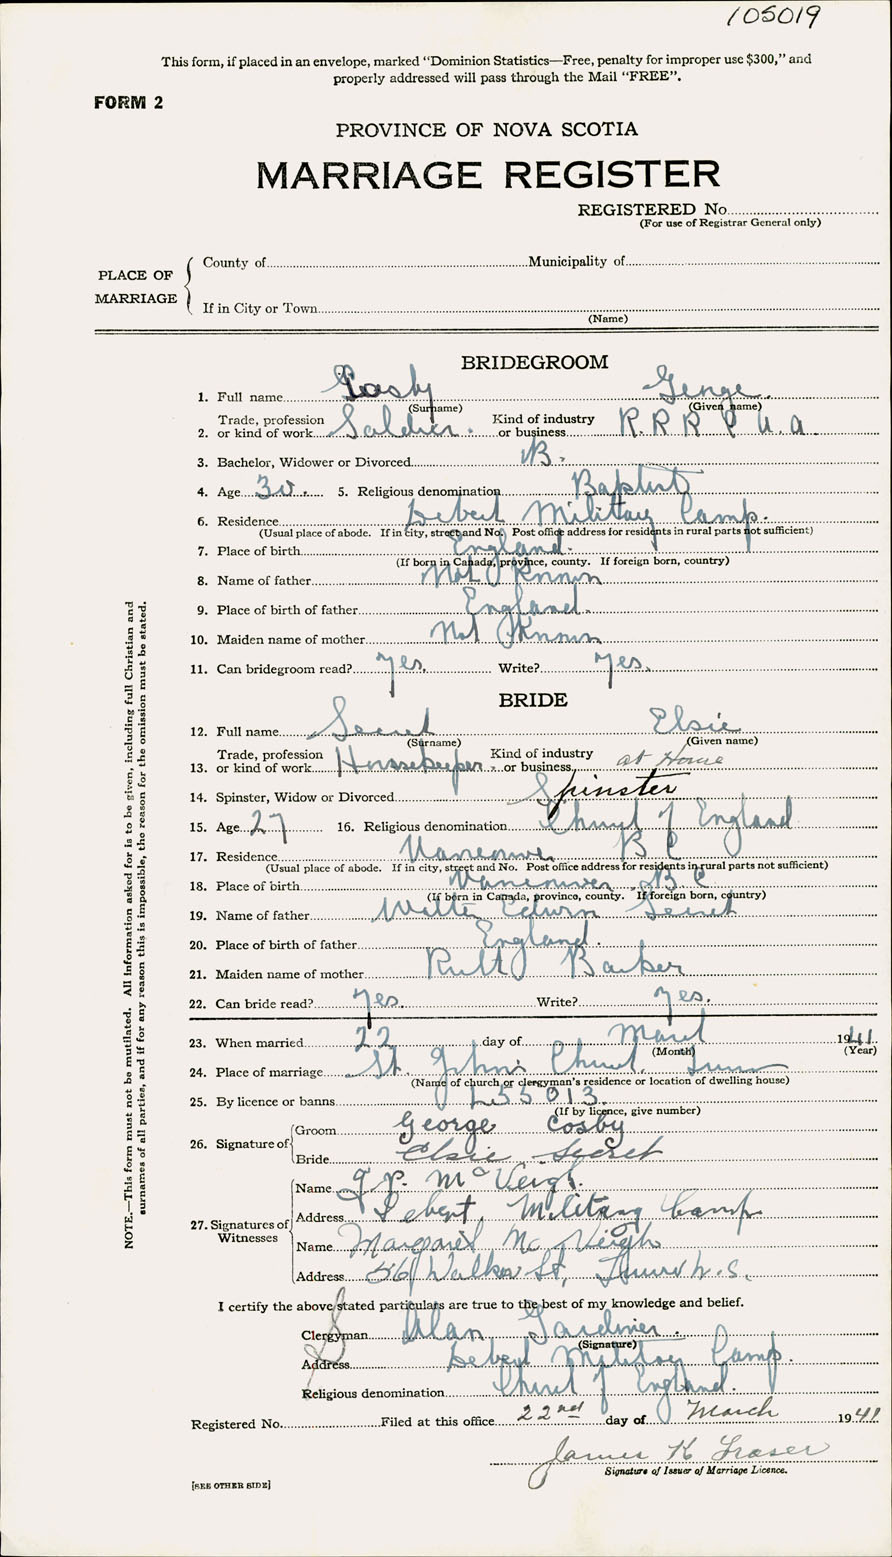 105019
This form, if placed in an envelope, marked "Dominion Statistics—Free, penalty for improper use $300," and
properly addressed will pass through the Mail "FREE".
FORM 2
PROVINCE OF NOVA SCOTIA
MARRIAGE REGISTER
REGISTERED No.
(For use of Registrar General only)
PLACE OF MARRIAGE
County of Municipality of
If in City or Town
(Name)
BRIDEGROOM
1. Full name Cosby George
(Surname) (Given name)
2. Trade, profession or kind of work Soldier. Kind of industry or business R.R.R.P.U.A.
3. Bachelor, Widower or Divorced B.
4. Age 30. 5. Religious denomination Baptist
6. Residence Debert Military Camp.
(Usual place of abode. If in city, street and No. Post office address for residents in rural parts not sufficient)
7. Place of birth England.
(If born in Canada, province, county. If foreign born, country)
8. Name of father Not Known
9. Place of birth of father England.
10. Maiden name of mother Not Known
11. Can bridegroom read? Yes. Write? Yes.
BRIDE
12. Full name Secret Elsie
(Surname) (Given name)
13. Trade, profession or kind of work Housekeeper. Kind of industry or business at Home
14. Spinster, Widow or Divorced Spinster
15. Age 27 16. Religious denomination Church of England
17. Residence Vancouver B C
(Usual place of abode. If in city, street and No. Post office address for residents in rural parts not sufficient)
18. Place of birth Vancouver B C
(If born in Canada, province, county. If foreign born, country)
19. Name of father Walter Edwin Secret
20. Place of birth of father England.
21. Maiden name of mother Ruth Barker
22. Can bride read? Yes. Write? Yes.
23. When married 22 day of March 1941
(Month) (Year)
24. Place of marriage St. John's Church. Truro
(Name of church or clergyman's residence or location of dwelling house)
25. By licence or banns L55013.
(If by licence, give number)
26. Signature of
Groom George Cosby
Bride Elsie Secret
27. Signatures of Witnesses
Name J.P. McVeigh.
Address Debert Military Camp
Name Margaret McVeigh
Address 56 Walker St, Truro N.S.
I certify the above stated particulars are true to the best of my knowledge and belief.
Clergyman Alan Gardiner.
(Signature)
Address Debert Military Camp.
Religious denomination Church of England.
Registered No. Filed at this office 22nd day of March 1941
James K Fraser
Signature of Issuer of Marriage Licence.
[SEE OTHER SIDE]
NOTE.—This form must not be mutilated. All information asked for is to be given, including full Christian and
surnames of all parties, and if for any reason this is impossible, the reason for the omission must be stated.